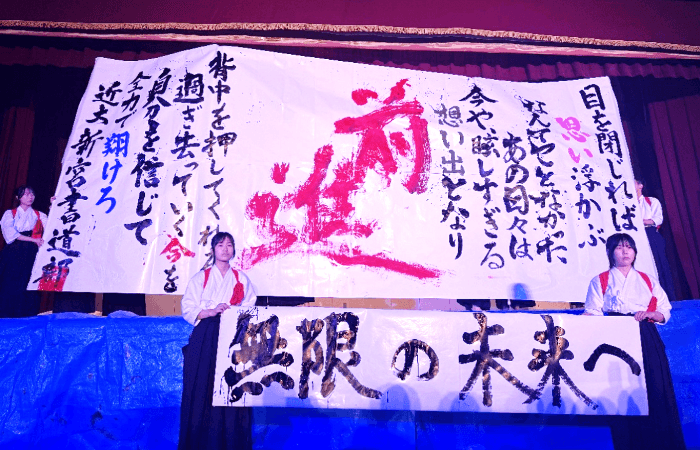 目を閉じれば
思い浮かぶ
なんてことなかった
あの日々は
今や眩しすぎる
想い出となり
前進
背中を押してくれる
過ぎ去っていく今を
自分を信じて
全力で翔けろ
近大新宮書道部
無限の未来へ